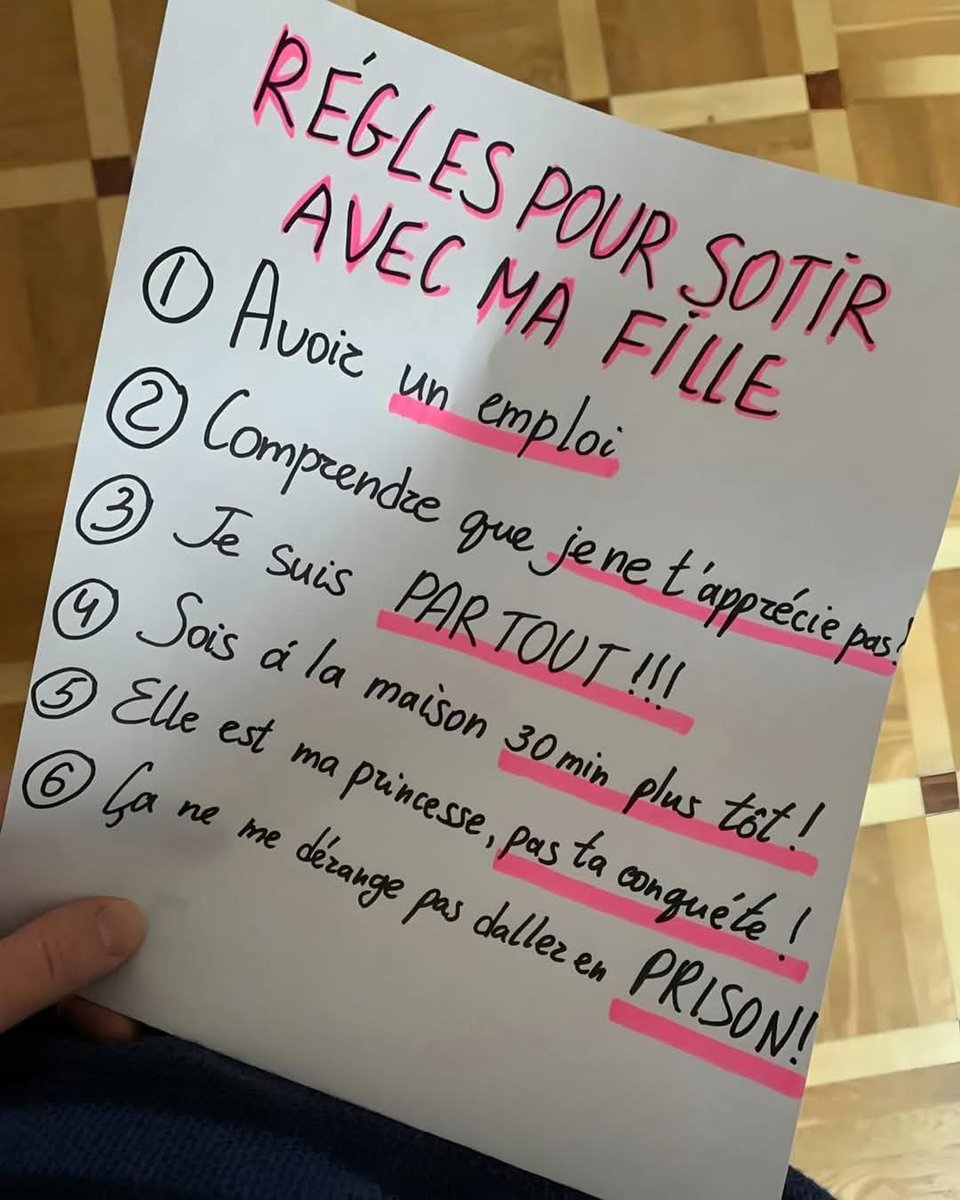 RÉGLES POUR SOTIR
AVEC MA FILLE
1 Avoir un emploi
2 Comprendre que je ne t'apprécie pas!
3 Je suis PARTOUT!!!
4 Sois á la maison 30min plus tôt!
5 Elle est ma princesse, pas ta conquéte!
6 Ça ne me dérange pas daller en PRISON!